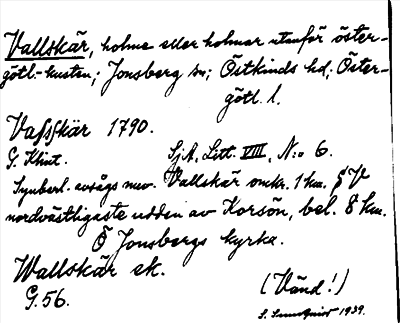 Vallskär, holme eller holmar utanför öster-
götl.-kusten; Jonsberg sn; Östkinds hd; Öster-
götl. l.
Vasskär 1790.
G. Klint. Sj.A. Litt. VIII, N:o 6.
Synberl. avsågs nuv. Vallskär omkr. 1 km. SV
nordvästligaste udden av Korsön, bel. 8 km.
Ö Jonsbergs kyrka.
Wallskär ek.
G. 56. (Vänd!)
1939.